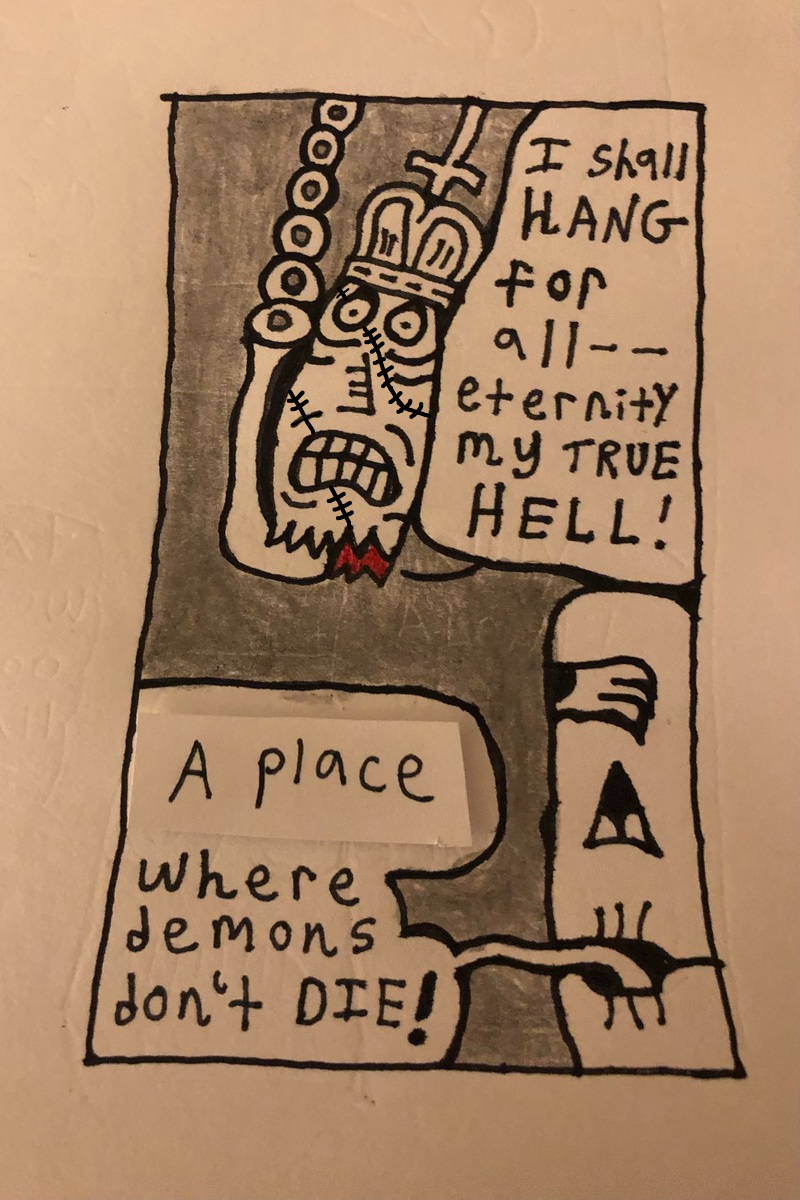 I shall
HANG
for
all--
eternity
my TRUE
HELL!
A place
where
demons
don't DIE!